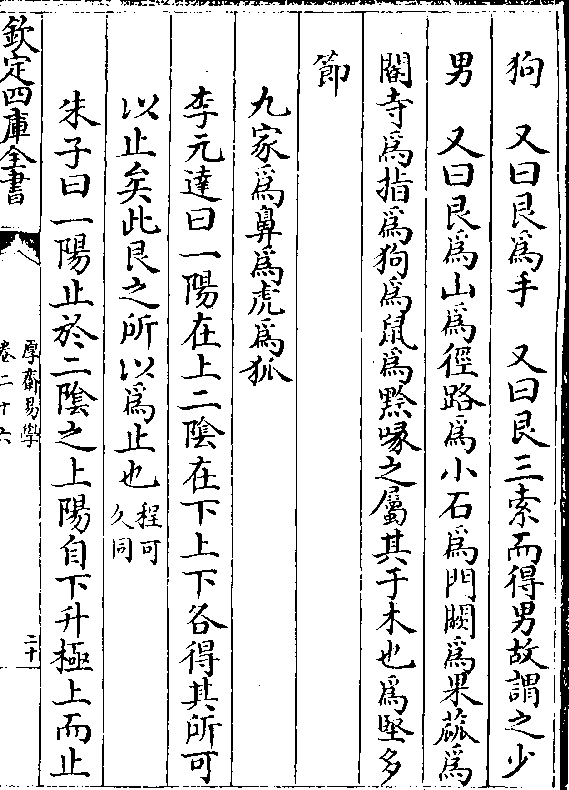 狗　又曰艮爲手　又曰艮三索而得男故謂之少
男　又曰艮爲山爲徑路爲小石爲門闕爲果蓏爲
閽寺爲指爲狗爲鼠爲黔喙之屬其于木也爲堅多
節
九家爲鼻爲虎爲狐
李元達曰一陽在上二陰在下上下各得其所可
以止矣此艮之所以爲止也程可久同
朱子曰一陽止於二陰之上陽自下升極上而止
欽定四庫全書
厚齋易學
卷二十六
二十